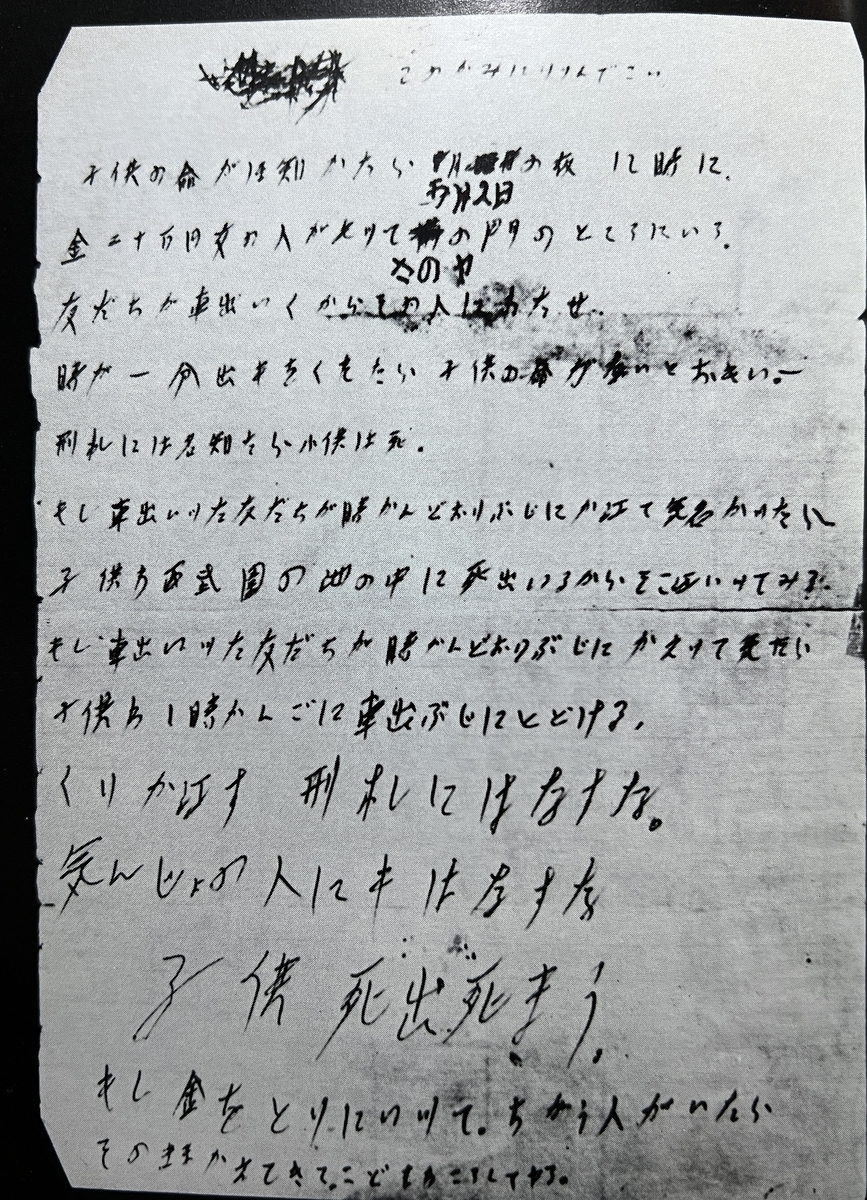 このかみにつツんでこい
子供の命がほ知かたら の夜12時に、
五月2日
金二十万円女の人がもツて の門のところにいろ。
さのヤ
友だちが車出いくからその人にわたせ。
時が一分出もをくれたら子供の命がないとおもい。ー
刑札には名知たら小供は死。
もし車出いツた友だちが時かんどおりぶじにか江て気名かツたら
子供わ西武園の池の中に死出いるからそこ江いツてみろ。
もし車出いツた友だちが時かんどおりぶじにかえツて気たら
子供わ1時かんごに車出ぶじにとどける。
くりか江す 刑札にはなすな。
気んじょの人にもはなすな
子供死出死まう。
もし金をとりにいツて。ちがう人がいたら
そのままかえてきて。こどもわころしてヤる。